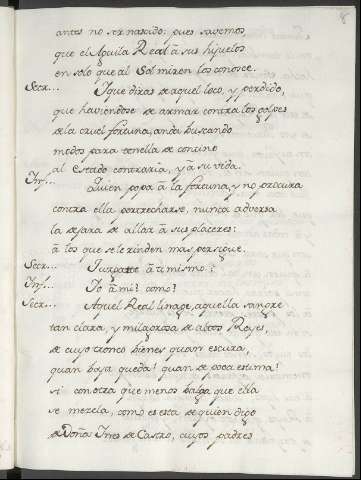 antes no ser nascido: pues savemos
que el Aguila Real à sus hijuelos
en solo que al Sol miren los conosce.
Secr... Y que diras de aquel loco, y perdido,
que haviendose de armar contra los golpes
de la cruel fortuna, anda buscando
modos para tenella de contino
al Estado contraria, y à su vida.
Inf... Quien popa à la fortuna, y no procura
contra ella pertrecharse, nunca adversa
la dejara de allar à sus placeres:
à los que se le rinden mas persigue.
Secr... Juzgaste à ti mismo?
Inf... Yo à mi? como?
Secr... Aquel Real linage, aquella sangre
tan clara, y milagrosa de altos Reyes,
de cuyo tronco bienes quan escura,
quan baja queda! quan de poca estima!
si con otra que menos balga que ella
se mezcla, como es esta de quien digo
de Doña Ines de Castro, cuyos padres